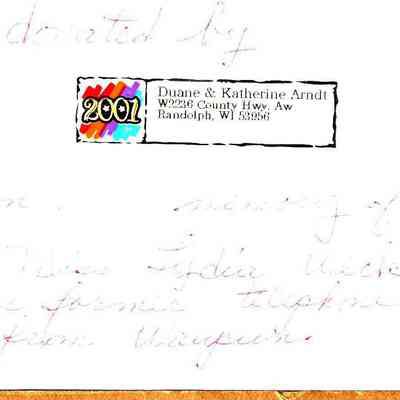 donated by
2001
Duane & Katherine Arndt
W2236 County Hwy. Aw
Randolph, WI 53956
memory of
Lydia
former telephone
from Waupun.